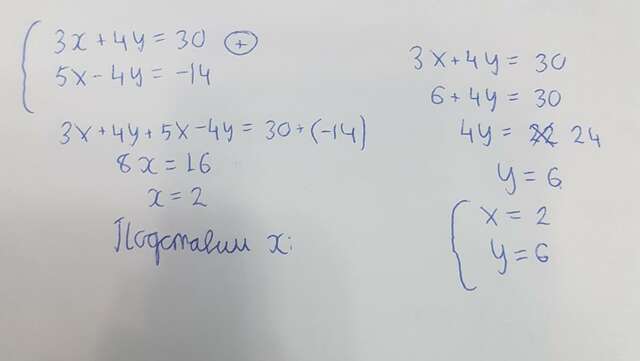 3x + 4y = 30 (+)
5x - 4y = -14
3x + 4y + 5x - 4y = 30 + (-14)
8x = 16
x = 2
Подставим x:
3x + 4y = 30
6 + 4y = 30
4y = 24
y = 6
x = 2
y = 6